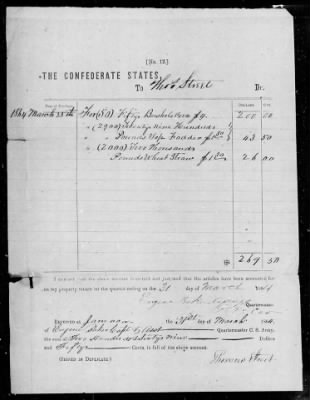 [No. 12.]
THE CONFEDERATE STATES,
To Thos Street Dr.
Date of Purchase. DOLLARS CENTS
1864 March 28th For (50) Fifty Bushels Corn $4. 200 00
" (2900) Twenty Nine Hundred
" " Pounds Top Fodder $1.50 43 50
" (2000) Two Thousand
Pounds Wheat Straw $1.30 26 00
$ 269 50
I CERTIFY that the above account is correct and just; and that the articles have been accounted for
in my property return for the quarter ending on the 31 day of March 1864
Quartermaster.
RECEIVED at the 31st day of March 1864,
of Quartermaster C. S. Army,
the sum of Two Hundred & Sixty Nine Dollars
and Fifty Cents, in full of the above account.
(SIGNED IN DUPLICATE.) Thomas Street